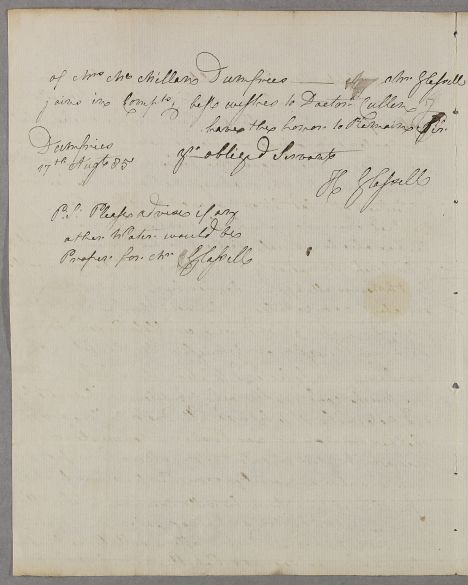 of Mrs Mc Millan Dumfries — Mr Glassell
joins in Compts & best wishes to Doctr Cullen I
have the honor to Remain Sir
Dumfries
17th Augt 85
Yr obliged Servant
H Glassell
P.S. Please advise if any
other Water would be
Proper for Mr Glassell